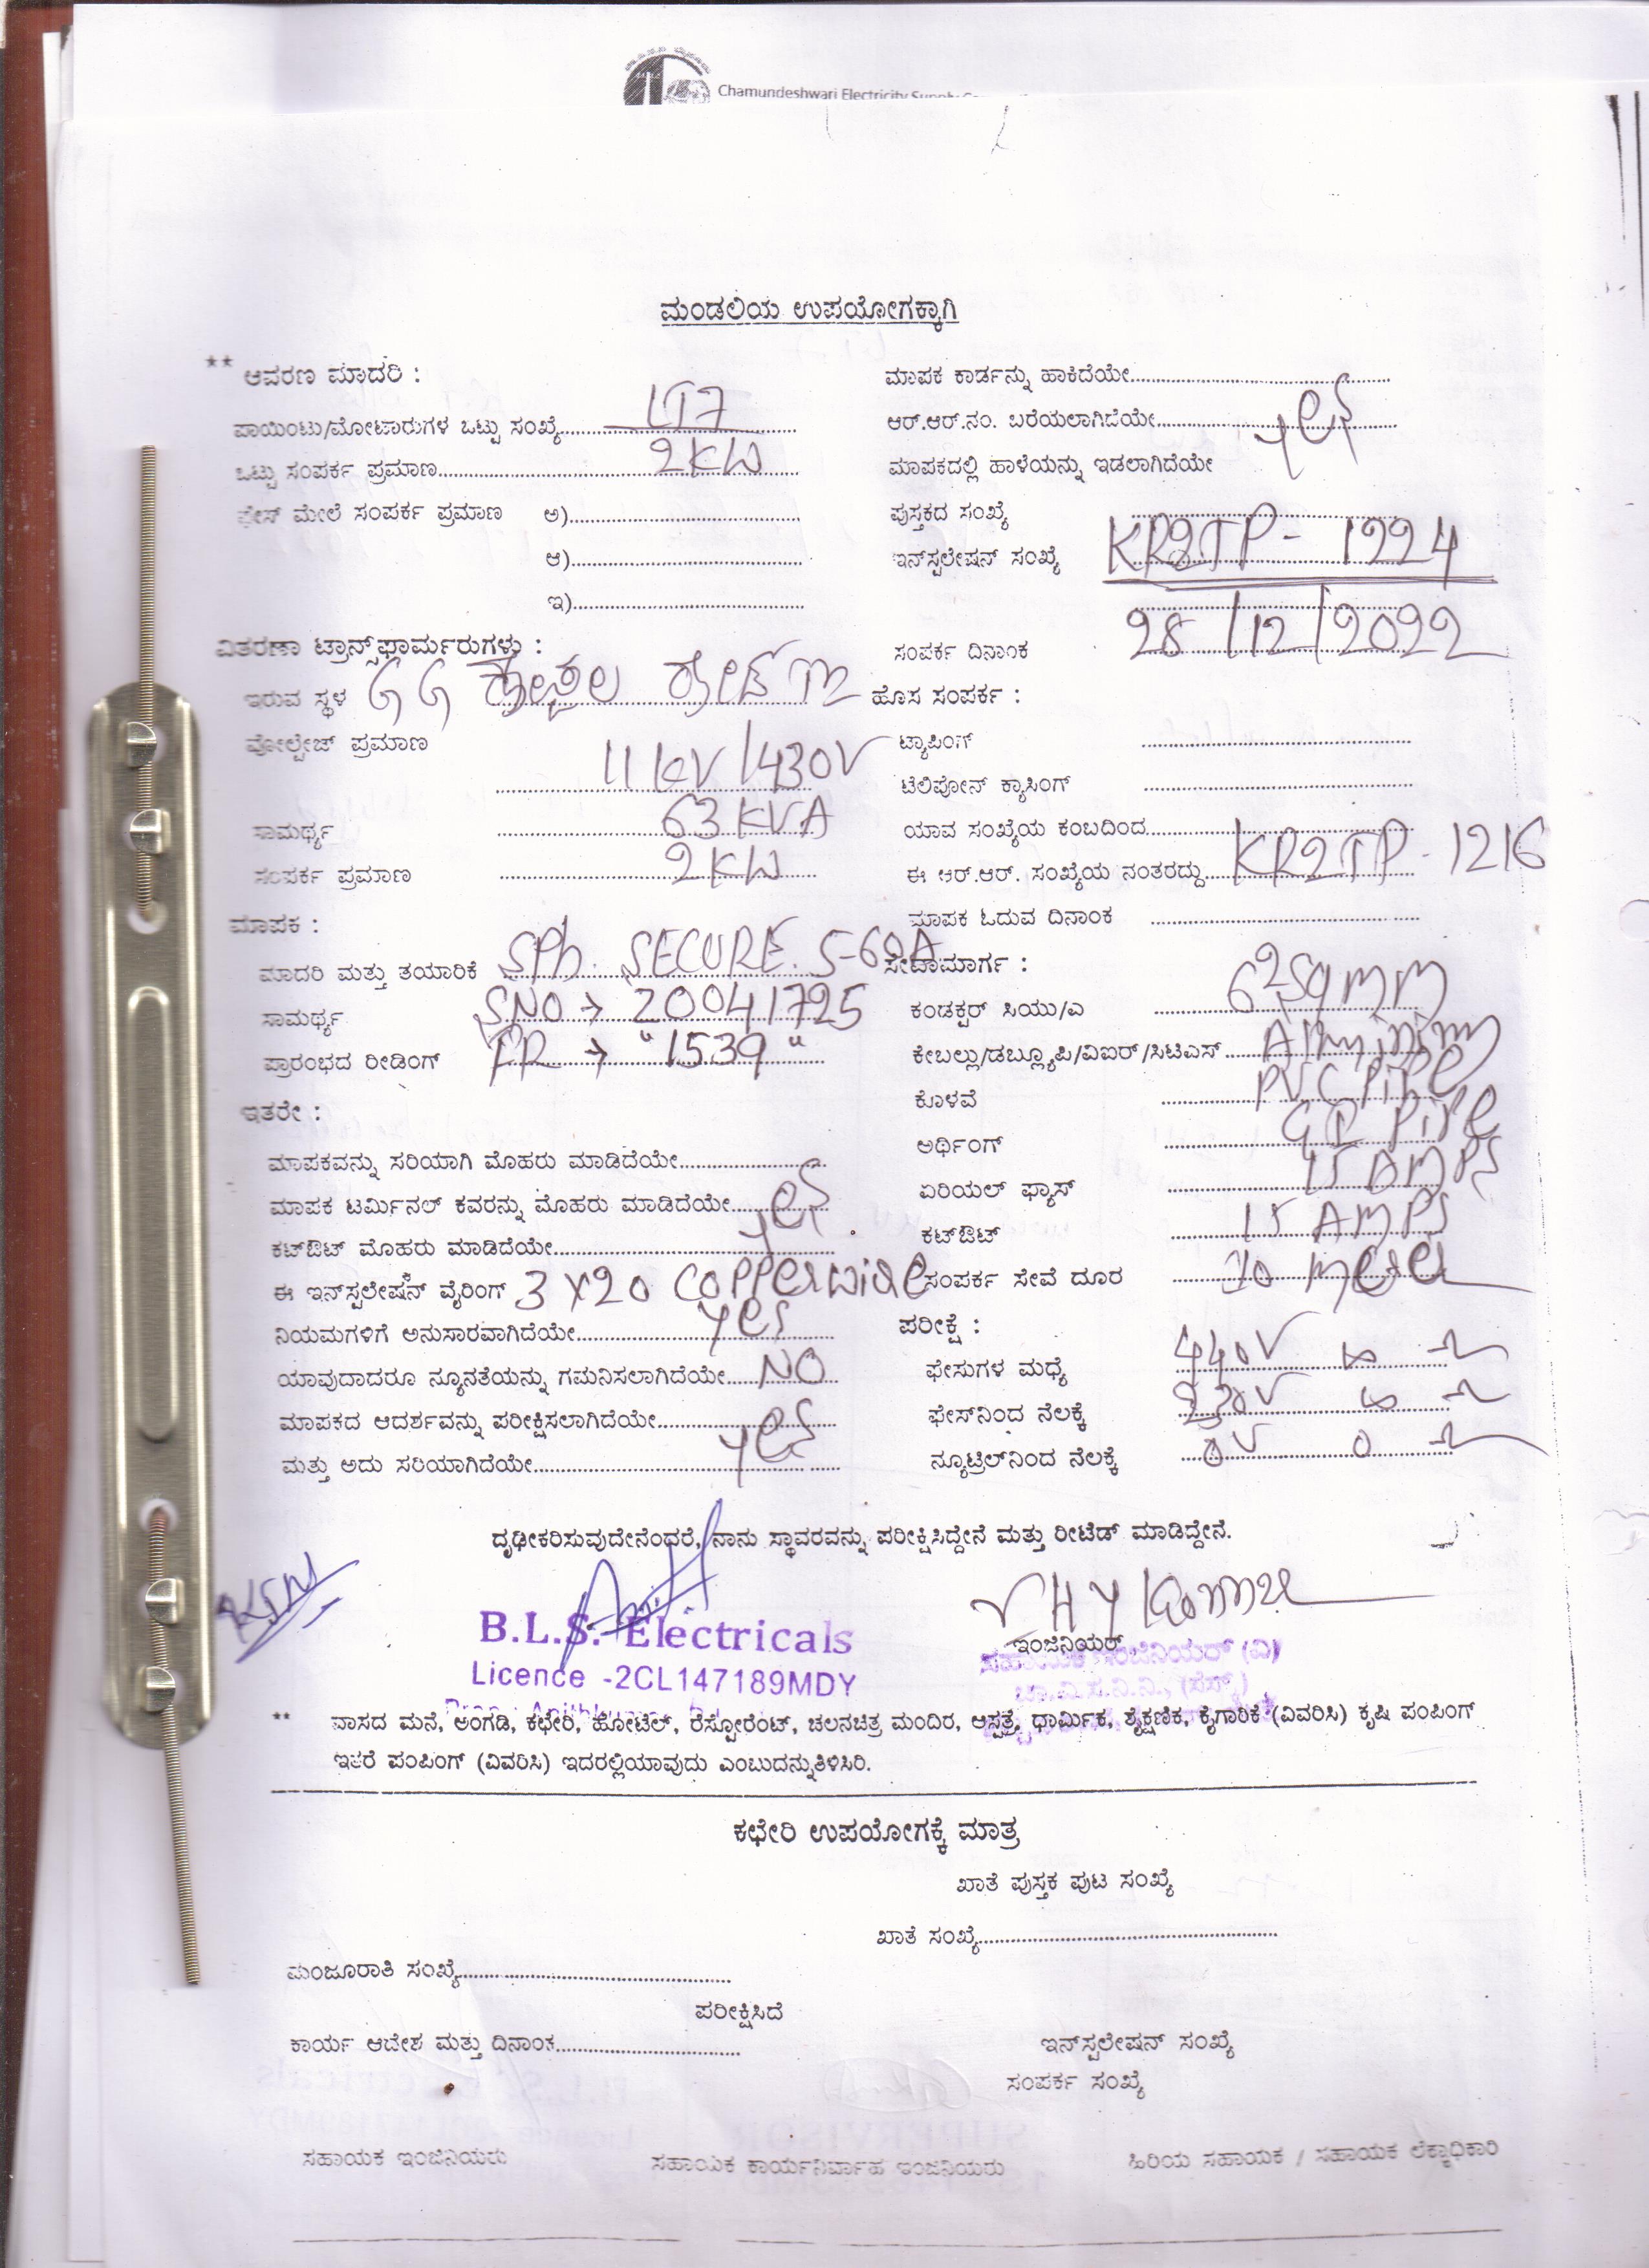 Chamundeshwari Electricity Supply
ಮಂಡಲಿಯ ಉಪಯೋಗಕ್ಕಾಗಿ
** ಆವರಣ ಮಾದರಿ :
ಪಾಯಿಂಟು/ಮೋಟಾರುಗಳ ಒಟ್ಟು ಸಂಖ್ಯೆ LT7
ಒಟ್ಟು ಸಂಪರ್ಕ ಪ್ರಮಾಣ 2KW
ಫೇಸ್ ಮೇಲೆ ಸಂಪರ್ಕ ಪ್ರಮಾಣ ಅ)
ಆ)
ಇ)
ವಿತರಣಾ ಟ್ರಾನ್ಸ್‌ಫಾರ್ಮರುಗಳು :
ಇರುವ ಸ್ಥಳ
ವೋಲ್ಟೇಜ್ ಪ್ರಮಾಣ 11KV/430V
ಸಾಮರ್ಥ್ಯ 63KVA
ಸಂಪರ್ಕ ಪ್ರಮಾಣ 2KW
ಮಾಪಕ :
ಮಾದರಿ ಮತ್ತು ತಯಾರಿಕೆ SPh. SECURE. 5-60A
ಸಾಮರ್ಥ್ಯ SNO → 20041725
ಪ್ರಾರಂಭದ ರೀಡಿಂಗ್ FR → "1539"
ಇತರೇ :
ಮಾಪಕವನ್ನು ಸರಿಯಾಗಿ ಮೊಹರು ಮಾಡಿದೆಯೇ
ಮಾಪಕ ಟರ್ಮಿನಲ್ ಕವರನ್ನು ಮೊಹರು ಮಾಡಿದೆಯೇ yes
ಕಟ್‌ಔಟ್ ಮೊಹರು ಮಾಡಿದೆಯೇ
ಈ ಇನ್‌ಸ್ಟಲೇಷನ್ ವೈರಿಂಗ್ 3 X20 Copperwire
ನಿಯಮಗಳಿಗೆ ಅನುಸಾರವಾಗಿದೆಯೇ yes
ಯಾವುದಾದರೂ ನ್ಯೂನತೆಯನ್ನು ಗಮನಿಸಲಾಗಿದೆಯೇ NO
ಮಾಪಕದ ಆದರ್ಶವನ್ನು ಪರೀಕ್ಷಿಸಲಾಗಿದೆಯೇ
ಮತ್ತು ಅದು ಸರಿಯಾಗಿದೆಯೇ yes
ಮಾಪಕ ಕಾರ್ಡನ್ನು ಹಾಕಿದೆಯೇ
ಆರ್.ಆರ್.ನಂ. ಬರೆಯಲಾಗಿದೆಯೇ yes
ಮಾಪಕದಲ್ಲಿ ಹಾಳೆಯನ್ನು ಇಡಲಾಗಿದೆಯೇ
ಪುಸ್ತಕದ ಸಂಖ್ಯೆ
ಇನ್‌ಸ್ಟಲೇಷನ್ ಸಂಖ್ಯೆ KR2TP - 1224
ಸಂಪರ್ಕ ದಿನಾಂಕ 28/12/2022
ಹೊಸ ಸಂಪರ್ಕ :
ಟ್ಯಾಪಿಂಗ್
ಟೆಲಿಫೋನ್ ಕ್ಯಾಸಿಂಗ್
ಯಾವ ಸಂಖ್ಯೆಯ ಕಂಬದಿಂದ
ಈ ಆರ್.ಆರ್. ಸಂಖ್ಯೆಯ ನಂತರದ್ದು KR2TP - 1216
ಮಾಪಕ ಓದುವ ದಿನಾಂಕ
ಸೇವಾಮಾರ್ಗ :
ಕಂಡಕ್ಟರ್ ಸಿಯು/ಎ
ಕೇಬಲ್ಲು/ಡಬ್ಲ್ಯೂಪಿ/ವಿಐರ್/ಸಿಟಿಎಸ್
ಕೊಳವೆ PVC PiPe
ಅರ್ಥಿಂಗ್ GI PiPe
ಏರಿಯಲ್ ಫ್ಯೂಸ್ 15 AMPS
ಕಟ್‌ಔಟ್ 15 AMPS
ಸಂಪರ್ಕ ಸೇವೆ ದೂರ 10 meter
ಪರೀಕ್ಷೆ :
ಫೇಸುಗಳ ಮಧ್ಯೆ 440V ∞
ಫೇಸ್‌ನಿಂದ ನೆಲಕ್ಕೆ 230V ∞
ನ್ಯೂಟ್ರಲ್‌ನಿಂದ ನೆಲಕ್ಕೆ 0V 0
ದೃಢೀಕರಿಸುವುದೇನೆಂದರೆ, ನಾನು ಸ್ಥಾವರವನ್ನು ಪರೀಕ್ಷಿಸಿದ್ದೇನೆ ಮತ್ತು ರೀಟೆಡ್ ಮಾಡಿದ್ದೇನೆ.
B.L.S. Electricals
Licence -2CL147189MDY
ಇಂಜಿನಿಯರ್
** ವಾಸದ ಮನೆ, ಅಂಗಡಿ, ಕಛೇರಿ, ಹೋಟೆಲ್, ರೆಸ್ಟೋರೆಂಟ್, ಚಲನಚಿತ್ರ ಮಂದಿರ, ಆಸ್ಪತ್ರೆ, ಧಾರ್ಮಿಕ, ಶೈಕ್ಷಣಿಕ, ಕೈಗಾರಿಕೆ (ವಿವರಿಸಿ) ಕೃಷಿ ಪಂಪಿಂಗ್
ಇತರೆ ಪಂಪಿಂಗ್ (ವಿವರಿಸಿ) ಇದರಲ್ಲಿಯಾವುದು ಎಂಬುದನ್ನುತಿಳಿಸಿರಿ.
ಕಛೇರಿ ಉಪಯೋಗಕ್ಕೆ ಮಾತ್ರ
ಖಾತೆ ಪುಸ್ತಕ ಪುಟ ಸಂಖ್ಯೆ
ಖಾತೆ ಸಂಖ್ಯೆ
ಮಂಜೂರಾತಿ ಸಂಖ್ಯೆ
ಪರೀಕ್ಷಿಸಿದೆ
ಕಾರ್ಯ ಆದೇಶ ಮತ್ತು ದಿನಾಂಕ
ಇನ್‌ಸ್ಟಲೇಷನ್ ಸಂಖ್ಯೆ
ಸಂಪರ್ಕ ಸಂಖ್ಯೆ
ಸಹಾಯಕ ಇಂಜಿನಿಯರು ಸಹಾಯಕ ಕಾರ್ಯನಿರ್ವಾಹ ಇಂಜನಿಯರು ಹಿರಿಯ ಸಹಾಯಕ / ಸಹಾಯಕ ಲೆಕ್ಕಾಧಿಕಾರಿ